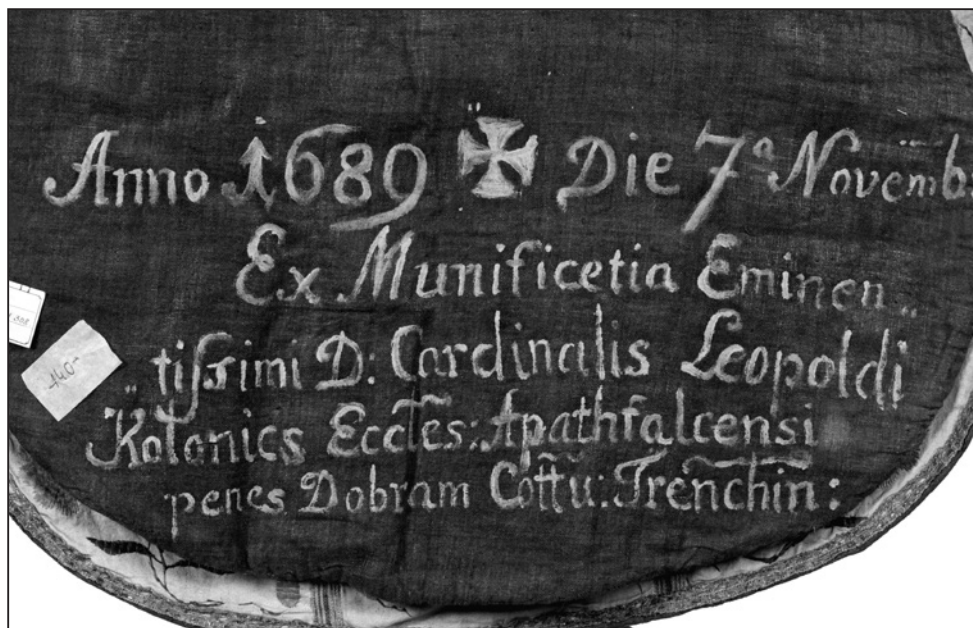 Anno 1689 Die 7ª Novemb
Ex Munificetia Eminen„
„tiſsimi D: Cardinalis Leopoldi
Kolonics Eccles: Apathfalcensi
penes Dobram Cottu: Trenchin:
140-